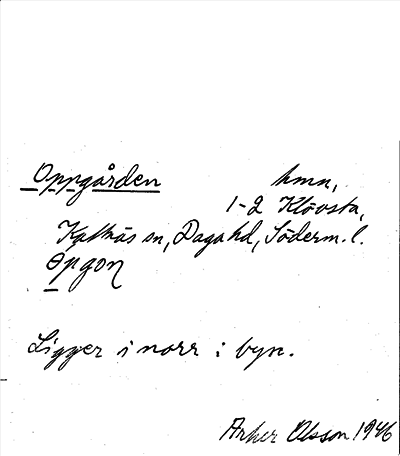 Oppgården hmn,
1-2 Klövsta,
Kattnäs sn, Daga hd, Söderm. l.
Öpgon
Ligger i norr i byn.
Olsson 1946